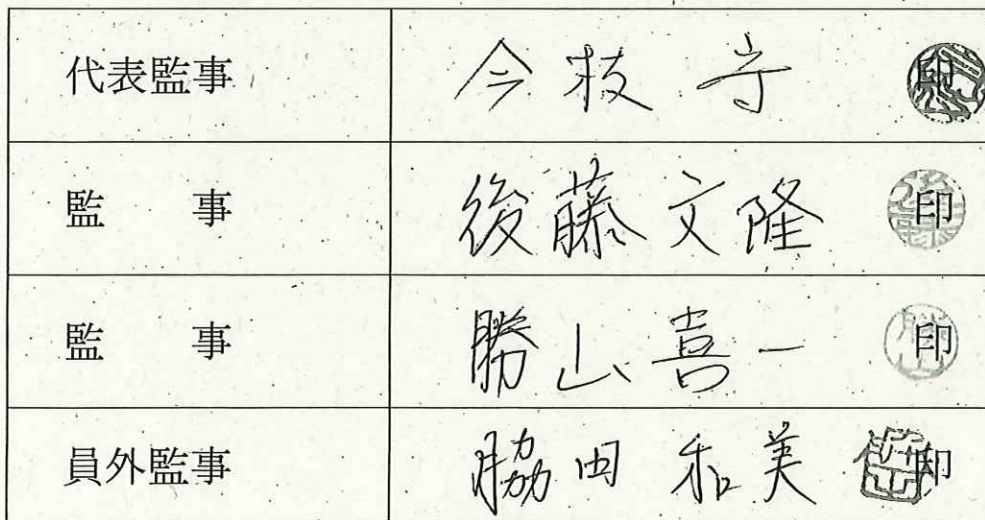 代表監事 今枝守 印
監事 後藤文隆 印
監事 勝山喜一 印
員外監事 脇田和美 印